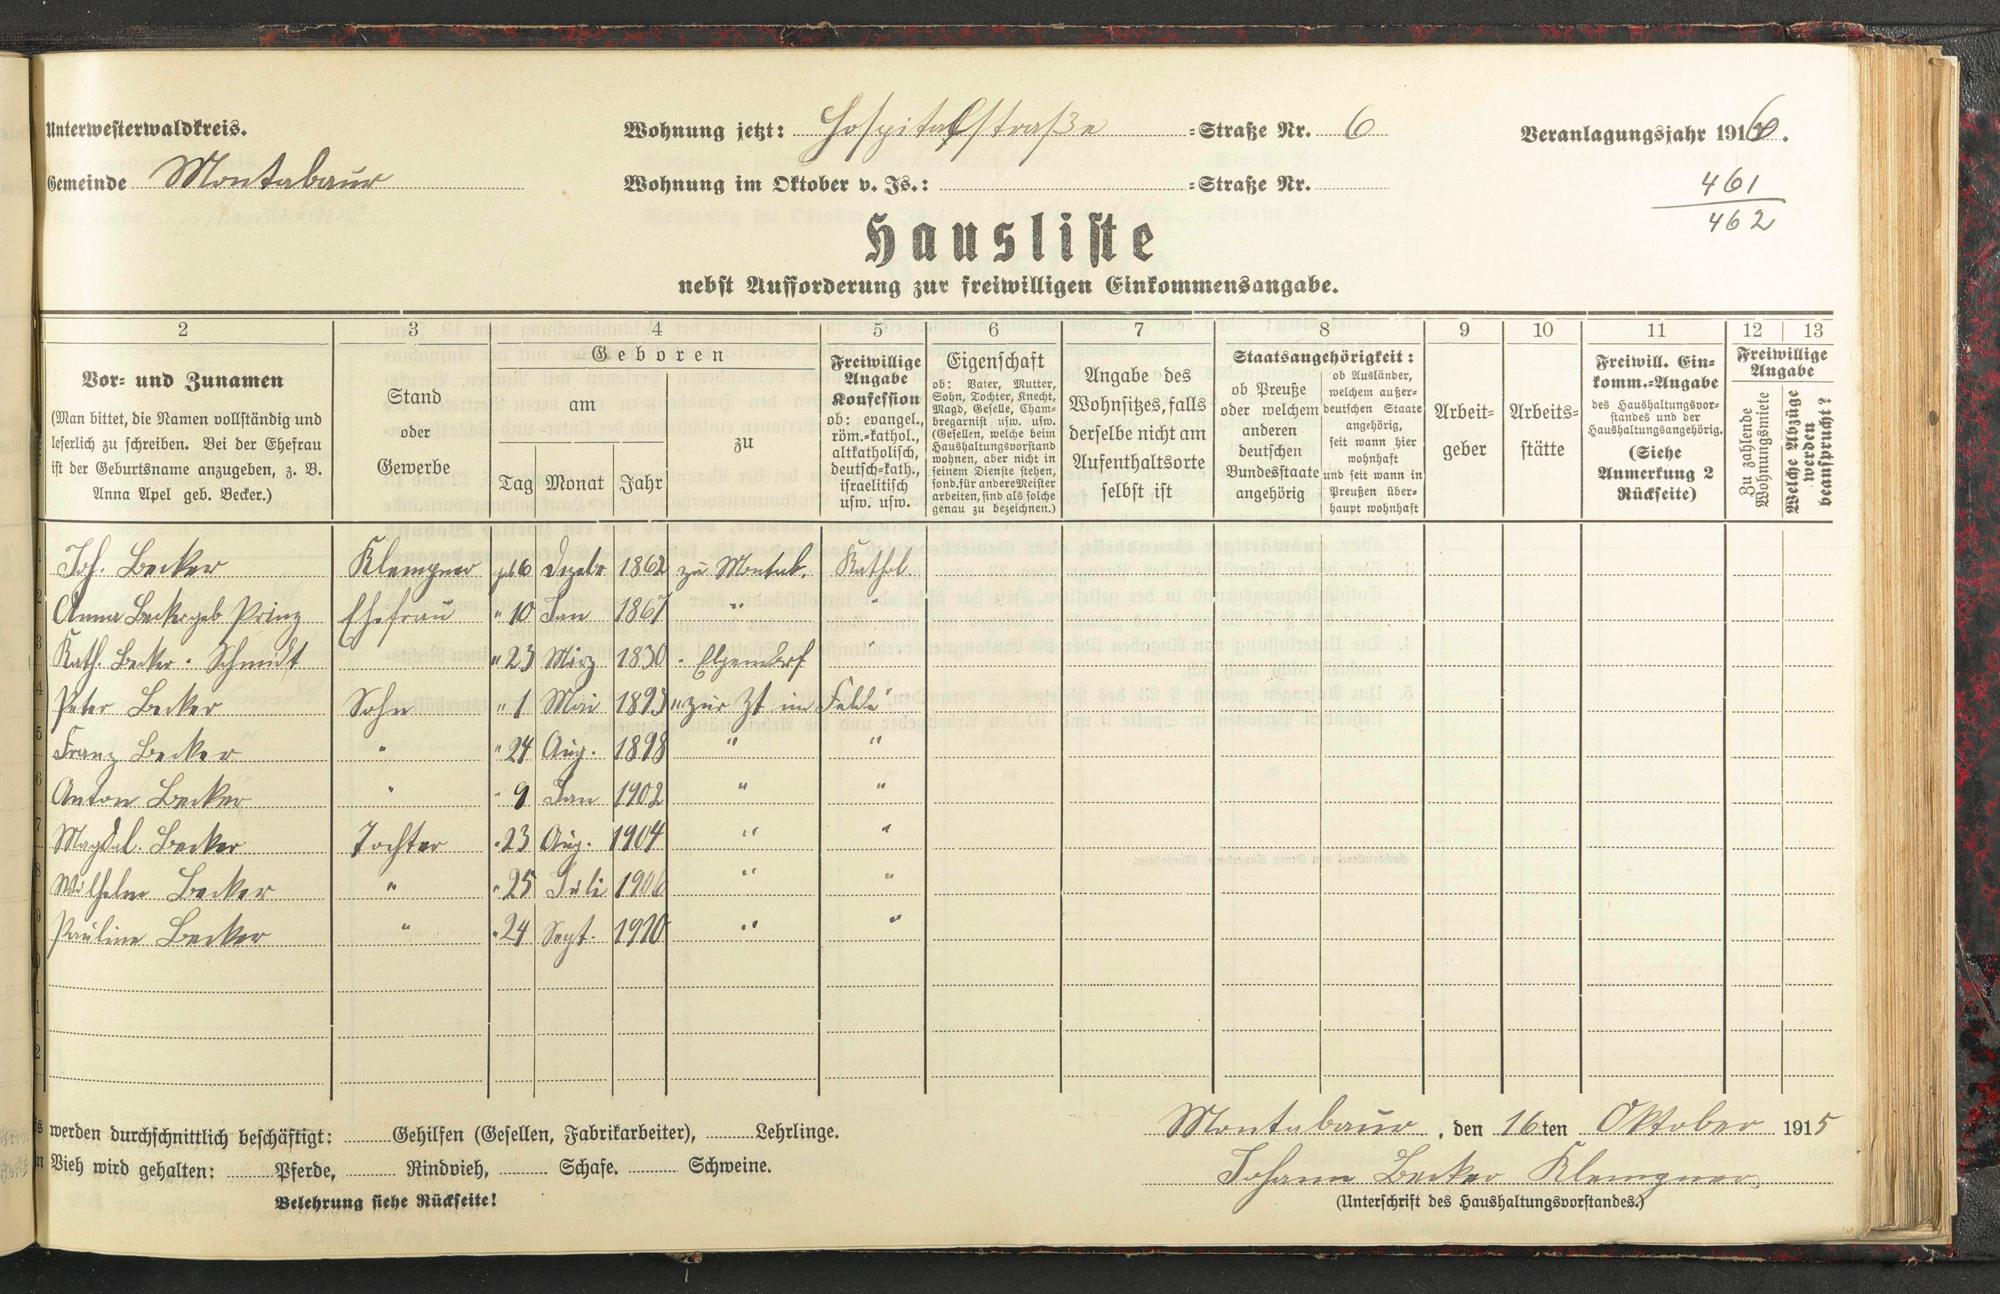 Unterwesterwaldkreis.
Wohnung jetzt: Hospitalstraße =Straße Nr. 6
Veranlagungsjahr 1916.
Gemeinde Montabaur
Wohnung im Oktober v. Js.: =Straße Nr.
461
462
Hausliste
nebst Aufforderung zur freiwilligen Einkommensangabe.
2 3 4 5 6 7 8 9 10 11 12 13
Vor= und Zunamen
(Man bittet, die Namen vollständig und
leserlich zu schreiben. Bei der Ehefrau
ist der Geburtsname anzugeben, z. B.
Anna Apel geb. Becker.)
Stand
oder
Gewerbe
Geboren
am
Tag Monat Jahr
zu
Freiwillige
Angabe
Konfession
ob: evangel.,
röm.=kathol.,
altkatholisch,
deutsch=kath.,
israelitisch
usw. usw.
Eigenschaft
ob: Vater, Mutter,
Sohn, Tochter, Knecht,
Magd, Geselle, Cham-
bregarnist usw. usw.
(Gesellen, welche beim
Haushaltungsvorstand
wohnen, aber nicht in
seinem Dienste stehen,
sond. für andere Meister
arbeiten, sind als solche
genau zu bezeichnen.)
Angabe des
Wohnsitzes, falls
derselbe nicht am
Aufenthaltsorte
selbst ist
Staatsangehörigkeit:
ob Preuße
oder welchem
anderen
deutschen
Bundesstaate
angehörig
ob Ausländer,
welchem außer-
deutschen Staate
angehörig,
seit wann hier
wohnhaft
und seit wann in
Preußen über-
haupt wohnhaft
Arbeit=
geber
Arbeits=
stätte
Freiwill. Ein-
komm.=Angabe
des Haushaltungsvor-
standes und der
Haushaltungsangehörig.
(Siehe
Anmerkung 2
Rückseite)
Freiwillige
Angabe
Zu zahlende
Wohnungsmiete
Welche Abzüge
werden
beansprucht?
1 Joh. Becker Klempner geb 6 Dezebr 1862 zu Montab. Kathol.
2 Anna Becker geb Prinz Ehefrau " 10 Jan 1867 " "
3 Kath. Becker " Schmidt " 23 März 1830 " Elgendorf "
4 Peter Becker Sohn " 1 Mai 1893 " zur Zt im Felde "
5 Franz Becker " " 24 Aug. 1898 " "
6 Anton Becker " " 9 Jan 1902 " "
7 Magdal. Becker Tochter " 23 Aug. 1904 " "
8 Wilhelm Becker " " 25 Juli 1906 " "
9 Pauline Becker " " 24 Sept. 1910 " "
0
1
2
werden durchschnittlich beschäftigt: Gehilfen (Gesellen, Fabrikarbeiter), Lehrlinge.
Vieh wird gehalten: Pferde, Rindvieh, Schafe. Schweine.
Belehrung siehe Rückseite!
Montabaur, den 16ten Oktober 1915
Johann Becker Klempner.
(Unterschrift des Haushaltungsvorstandes.)